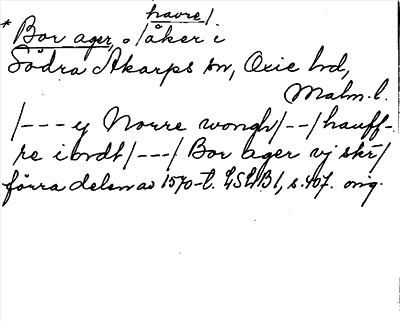 havre/
* Bor ager, o /åker i
Södra Åkarps sn, Oxie hd,
Malm. l.
/---y Norre wongh/--/hauff-
re i ordt/---/ Bor ager vj skr/
förra delen av 1570-t. LSLB1, s. 407. orig.